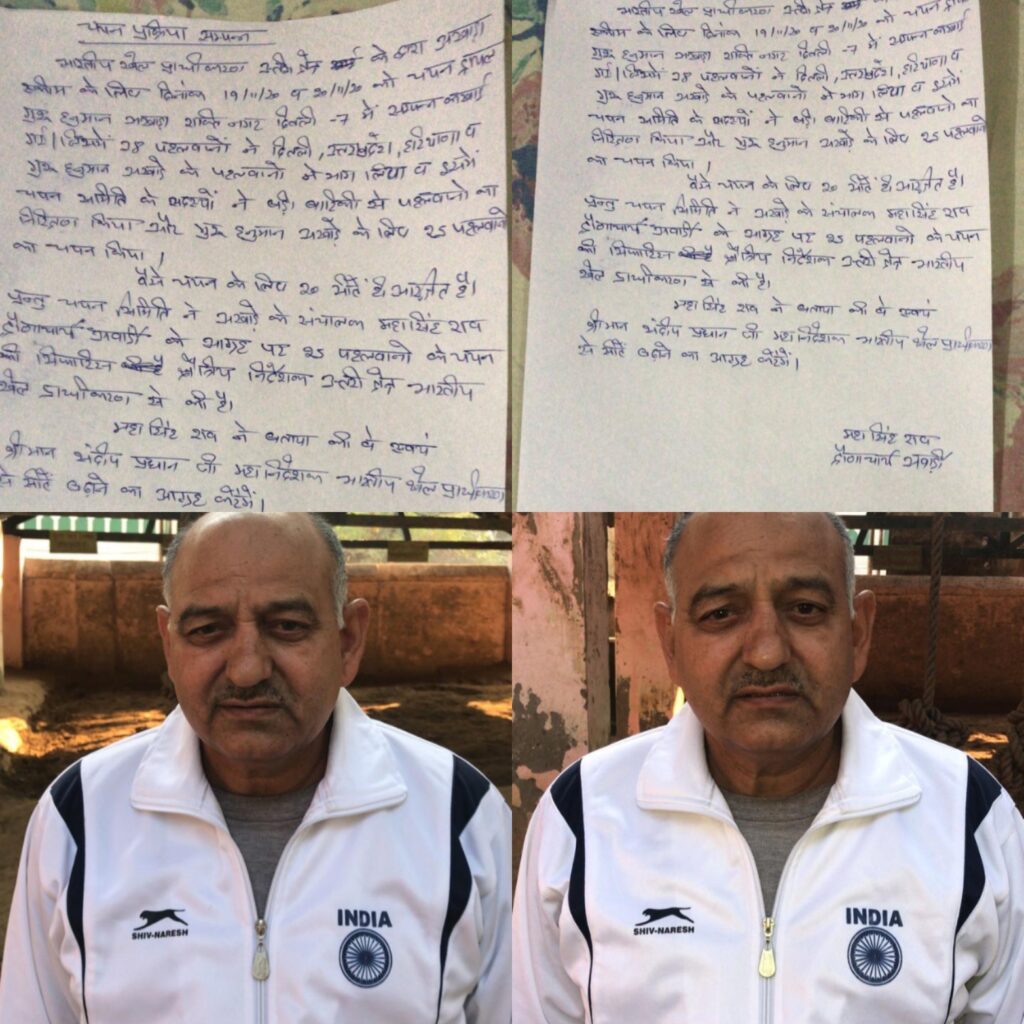 चयन प्रक्रिया सम्पन्न
भारतीय खेल प्राधीकरण उत्तरी क्षेत्र के द्वारा अखाड़ा
स्कीम के लिए दिनांक 19/11/20 व 20/11/20 को चयन ट्रायल
गुरु हनुमान अखाड़ा शक्ति नगर दिल्ली -7 में सम्पन्न कराई
गई। जिसमें 28 पहलवानों ने दिल्ली, उत्तरप्रदेश, हरियाणा व
गुरु हनुमान अखाड़े के पहलवानों ने भाग लिया व इसमें
चयन समिति के सदस्यों ने बड़ी बारिकी से पहलवानो का
निरिक्षण किया और गुरु हनुमान अखाड़े के लिए 25 पहलवानो
का चयन किया।
वैसे चयन के लिए 20 सीटें ही आरक्षित है।
परन्तु चयन समिति ने अखाड़े के संचालक महासिंह राव
द्रौणाचार्य अवार्डी के आग्रह पर 25 पहलवानो के चयन
की सिफारिश क्षैत्रिय निर्देशक उत्तरी क्षेत्र भारतीय
खेल प्राधीकरण से की है।
महा सिंह राव ने बताया की वे स्वयं
श्रीमान संदीप प्रधान जी महानिर्देशक भारतीय खेल प्राधीकरण
से सीटें बढ़ाने का आग्रह करेंगें।
भारतीय खेल प्राधीकरण उत्तरी क्षेत्र
स्कीम के लिए दिनांक 19/11/20 व 20/11/20 को चयन ट्रायल
गुरु हनुमान अखाड़ा शक्ति नगर दिल्ली -7 में सम्पन्न कराई
गई। जिसमें 28 पहलवानों ने दिल्ली, उत्तरप्रदेश, हरियाणा व
गुरु हनुमान अखाड़े के पहलवानों ने भाग लिया व इसमें
चयन समिति के सदस्यों ने बड़ी बारिकी से पहलवानो का
निरिक्षण किया और गुरु हनुमान अखाड़े के लिए 25 पहलवानो
का चयन किया।
वैसे चयन के लिए 20 सीटें ही आरक्षित है।
परन्तु चयन समिति ने अखाड़े के संचालक महासिंह राव
द्रौणाचार्य अवार्डी के आग्रह पर 25 पहलवानो के चयन
की सिफारिश क्षैत्रिय निर्देशक उत्तरी क्षेत्र भारतीय
खेल प्राधीकरण से की है।
महा सिंह राव ने बताया की वे स्वयं
श्रीमान संदीप प्रधान जी महानिर्देशक भारतीय खेल प्राधीकरण
से सीटें बढ़ाने का आग्रह करेंगें।
महा सिंह राव
द्रौणाचार्य अवार्डी
SHIV-NARESH
INDIA
SHIV-NARESH
INDIA